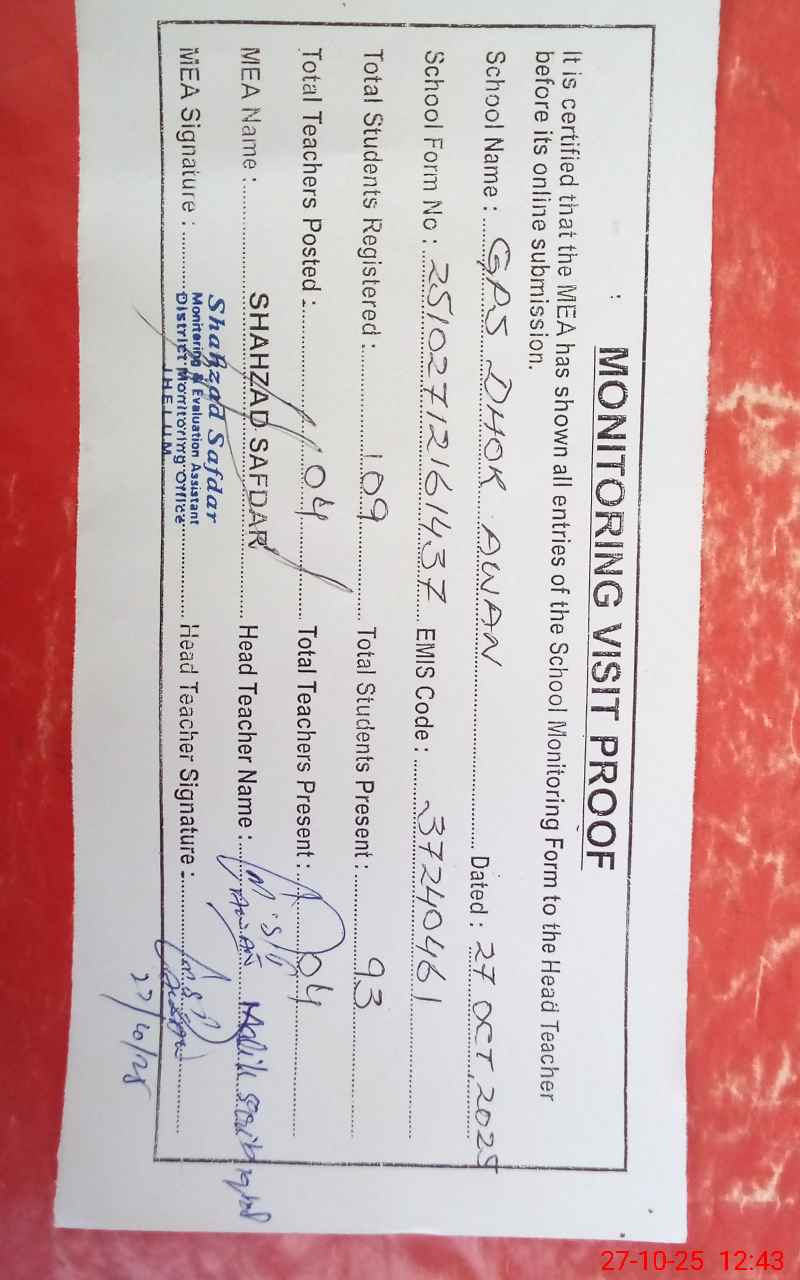 MONITORING VISIT PROOF
:
It is certified that the MEA has shown all entries of the School Monitoring Form to the Head Teacher
before its online submission.
School Name : GPS DHOK AWAN Dated : 27 OCT, 2025
School Form No : 25102712161437 EMIS Code : 37240461
Total Students Registered : 109 Total Students Present : 93
Total Teachers Posted : 04 Total Teachers Present : 04
MEA Name : SHAHZAD SAFDAR Head Teacher Name : Malik
MEA Signature : Head Teacher Signature :
Shahzad Safdar
Monitoring & Evaluation Assistant
District Monitoring Office
JHELUM
27/10/25
27-10-25 12:43